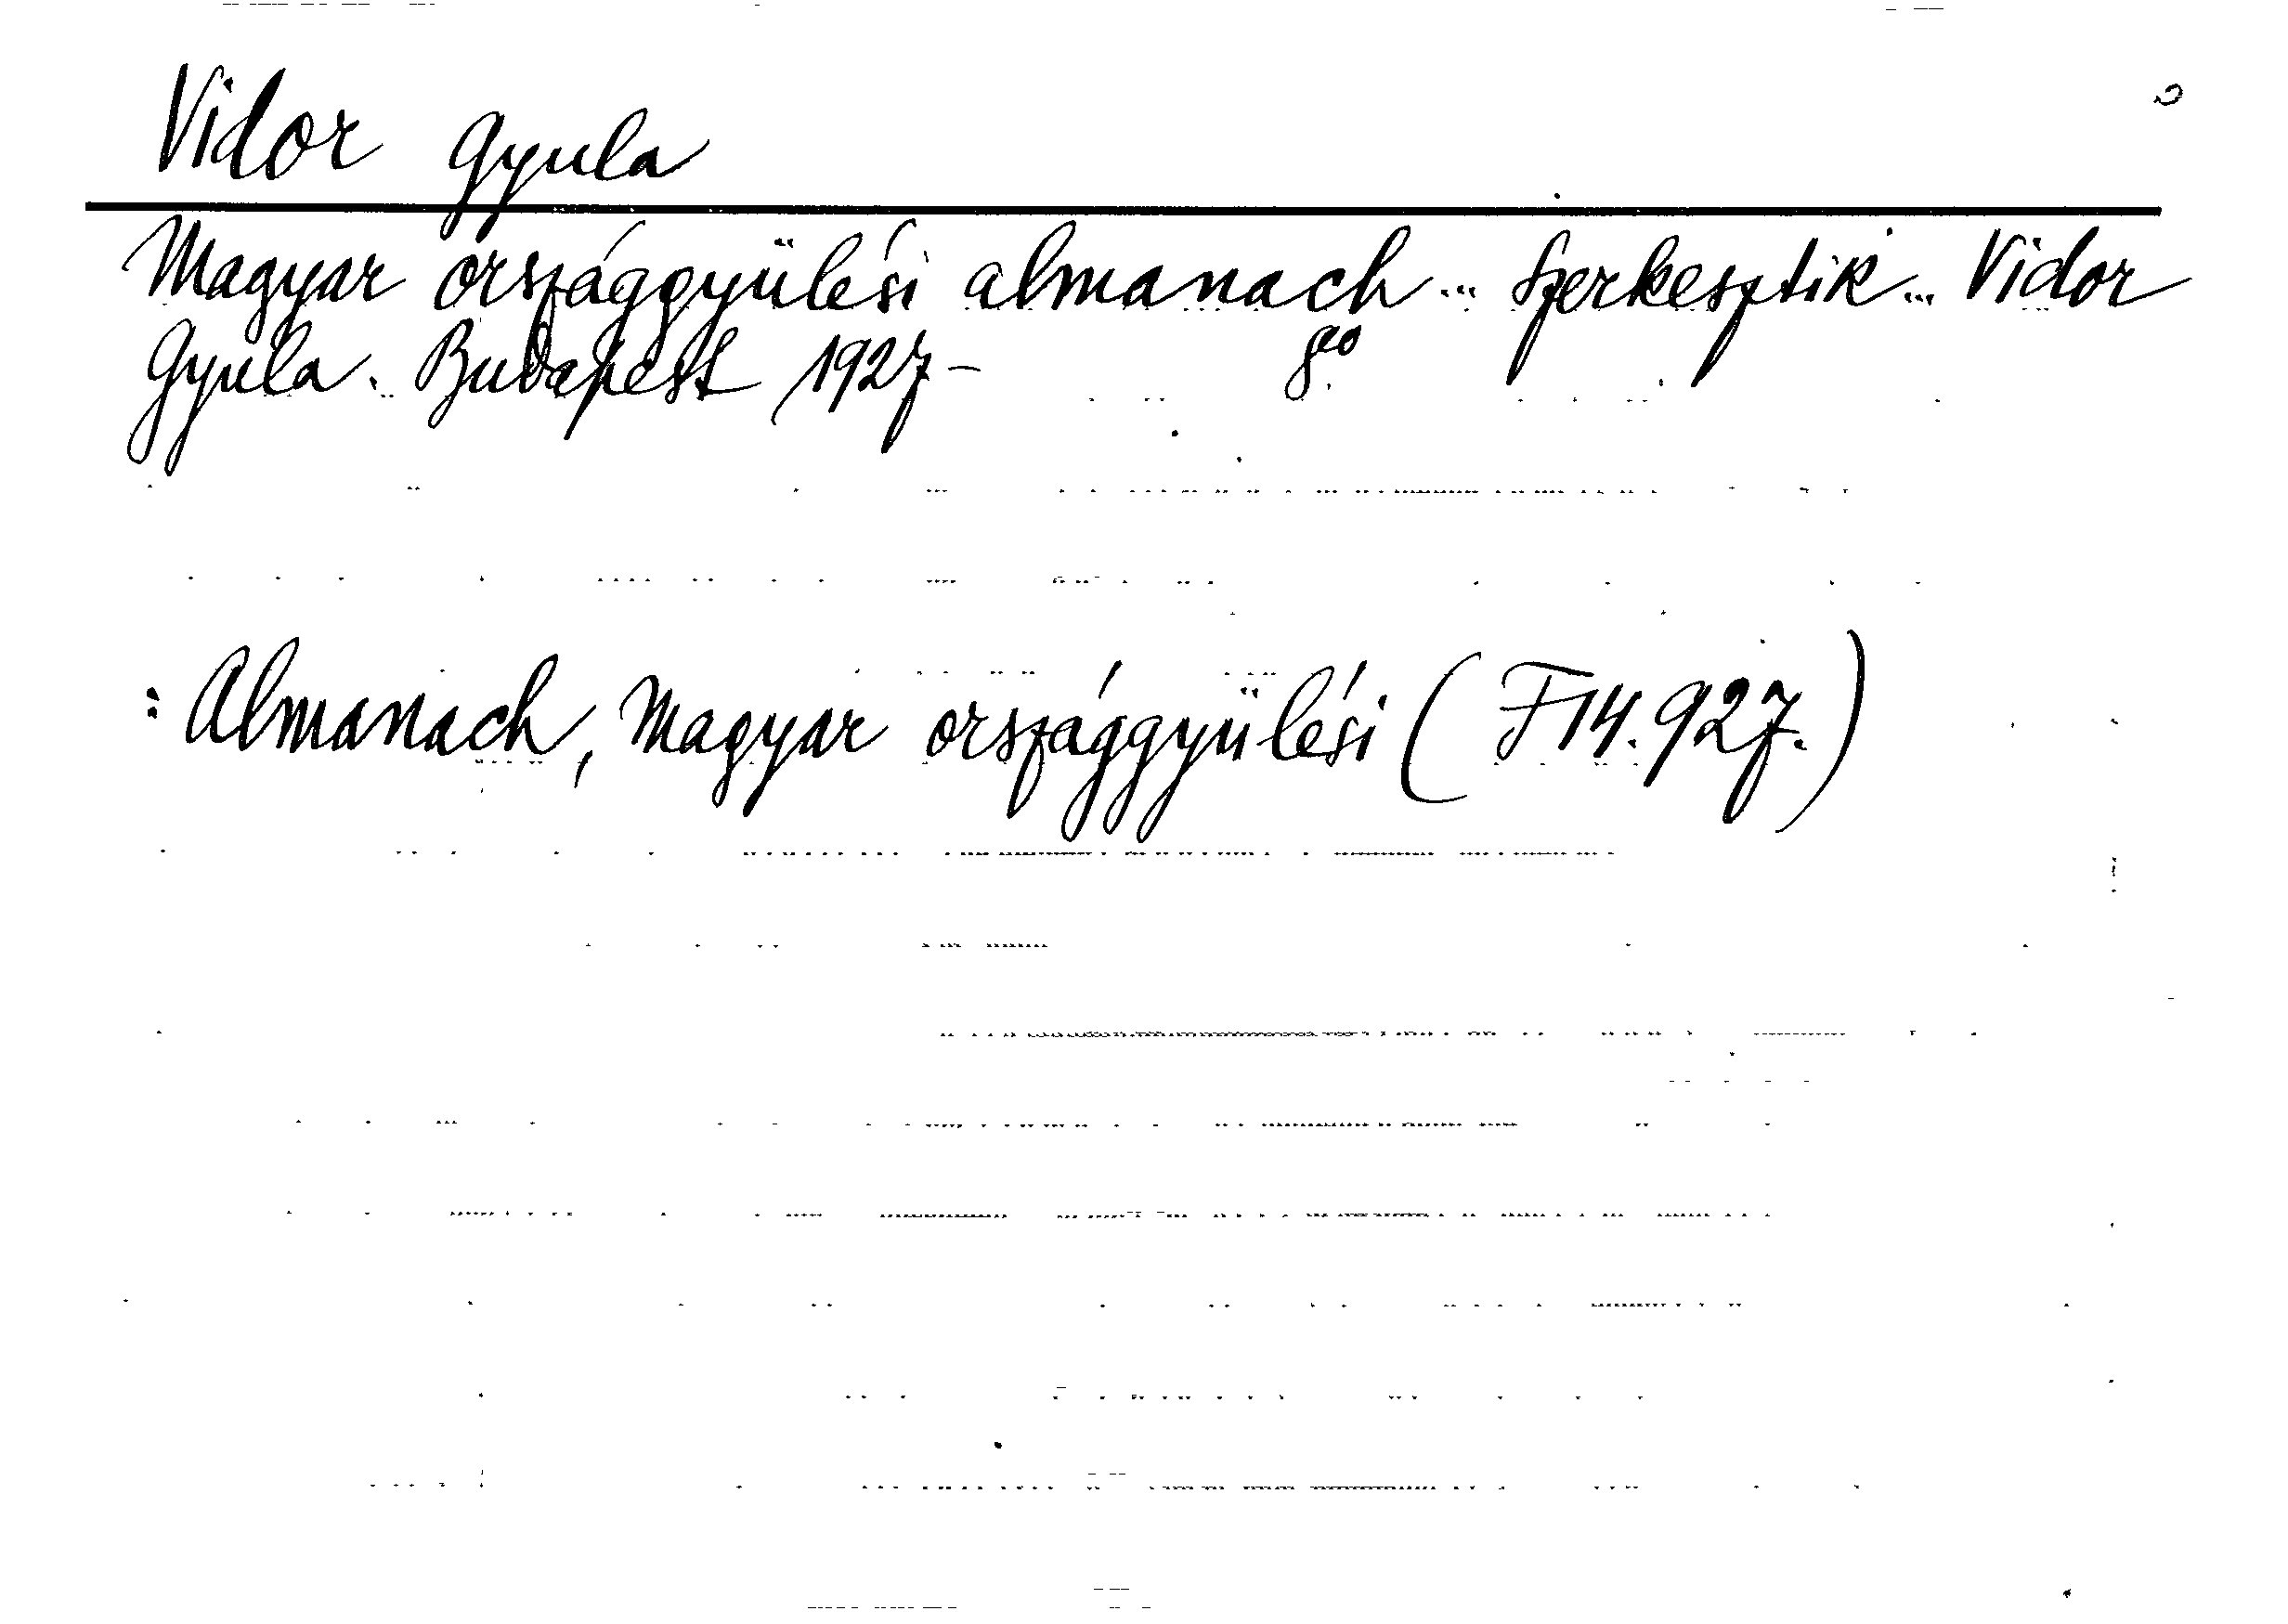 Vidor Gyula
Magyar országgyülési almanach ... Szerkesztik ... Vidor
Gyula. Budapest 1927- 8°
: Almanach, Magyar országgyülési (F14.927.)